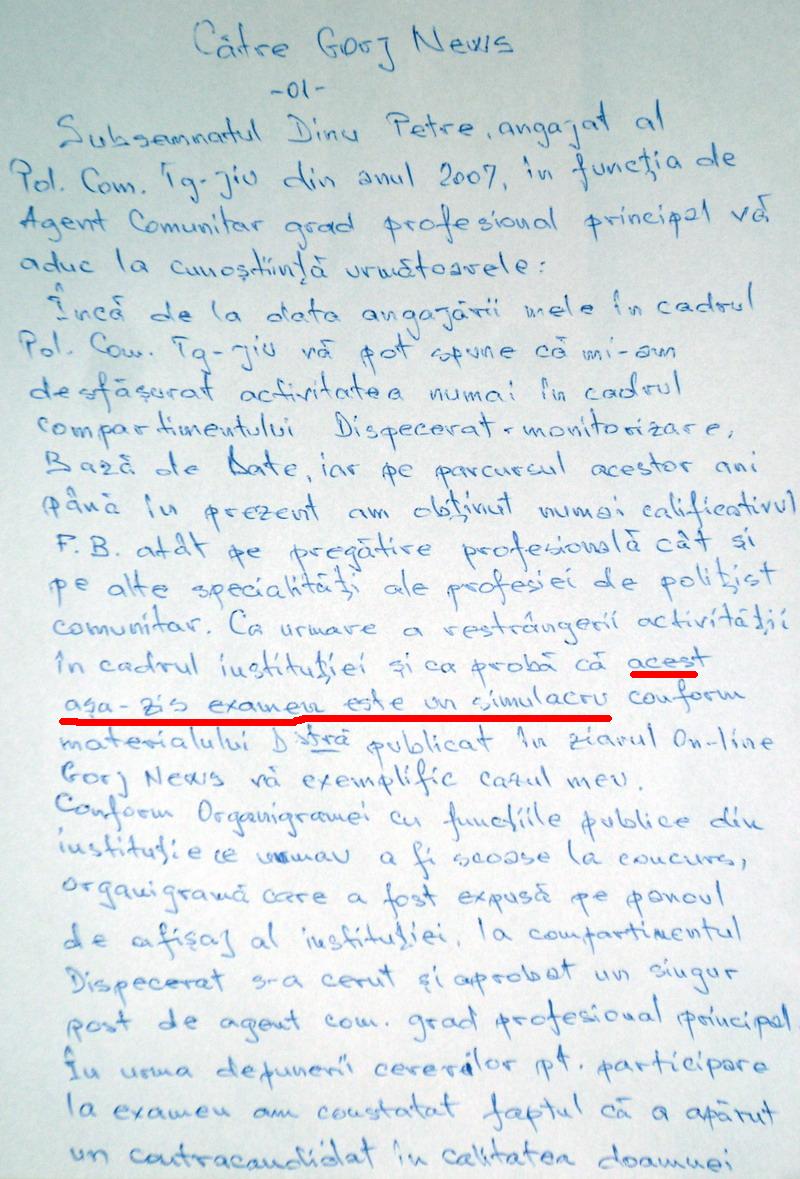 Către Gorj News
-01-
Subsemnatul Dinu Petre, angajat al
Pol. Com. Tg-Jiu din anul 2007, în funcția de
Agent Comunitar grad profesional principal vă
aduc la cunoștiință următoarele:
Încă de la data angajării mele în cadrul
Pol. Com. Tg-Jiu vă pot spune că mi-am
desfășurat activitatea numai în cadrul
compartimentului Dispecerat-monitorizare,
Bază de Date, iar pe parcursul acestor ani
până în prezent am obținut numai calificativul
F.B. atât pe pregătire profesională cât și
pe alte specialități ale profesiei de polițist
comunitar. Ca urmare a restrângerii activității
în cadrul instituției și ca probă că acest
așa-zis examen este un simulacru conform
materialului D-stră publicat în ziarul On-line
Gorj News vă exemplific cazul meu.
Conform Organigramei cu funcțiile publice din
instituție ce urmau a fi scoase la concurs,
organigramă care a fost expusă pe panoul
de afișaj al instituției, la compartimentul
Dispecerat s-a cerut și aprobat un singur
post de agent com. grad profesional principal
În urma depunerii cererilor pt. participare
la examen am constatat faptul că a apărut
un contracandidat în calitatea doamnei